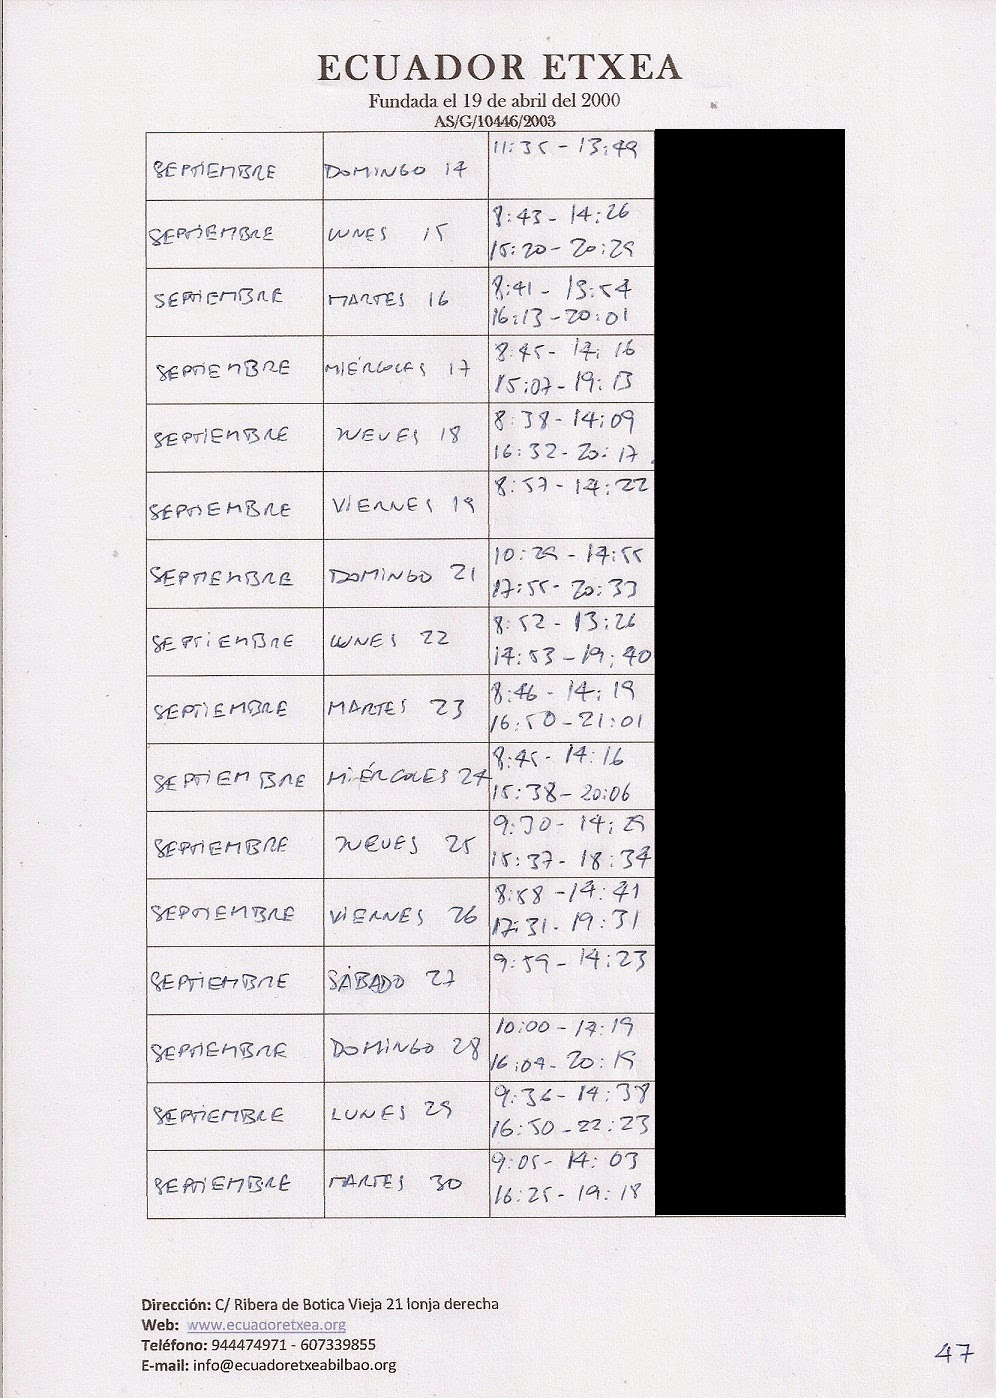 ECUADOR ETXEA
Fundada el 19 de abril del 2000
AS/G/10446/2003
SEPTIEMBRE DOMINGO 14 11:35 - 13:49
SEPTIEMBRE LUNES 15 8:43 - 14:26
15:20 - 20:29
SEPTIEMBRE MARTES 16 8:41 - 13:54
16:13 - 20:01
SEPTIEMBRE MIÉRCOLES 17 8:45 - 14:16
15:07 - 19:13
SEPTIEMBRE JUEVES 18 8:38 - 14:09
16:32 - 20:17
SEPTIEMBRE VIERNES 19 8:57 - 14:22
SEPTIEMBRE DOMINGO 21 10:29 - 14:55
17:55 - 20:33
SEPTIEMBRE LUNES 22 8:52 - 13:26
14:53 - 19:40
SEPTIEMBRE MARTES 23 8:46 - 14:19
16:50 - 21:01
SEPTIEMBRE MIÉRCOLES 24 8:45 - 14:16
15:38 - 20:06
SEPTIEMBRE JUEVES 25 9:30 - 14:29
15:37 - 18:34
SEPTIEMBRE VIERNES 26 8:58 - 14:41
17:31 - 19:31
SEPTIEMBRE SÁBADO 27 9:59 - 14:23
SEPTIEMBRE DOMINGO 28 10:00 - 14:19
16:09 - 20:19
SEPTIEMBRE LUNES 29 9:36 - 14:38
16:50 - 22:23
SEPTIEMBRE MARTES 30 9:05 - 14:03
16:25 - 19:18
Dirección: C/ Ribera de Botica Vieja 21 lonja derecha
Web: www.ecuadoretxea.org
Teléfono: 944474971 - 607339855
E-mail: info@ecuadoretxeabilbao.org
47